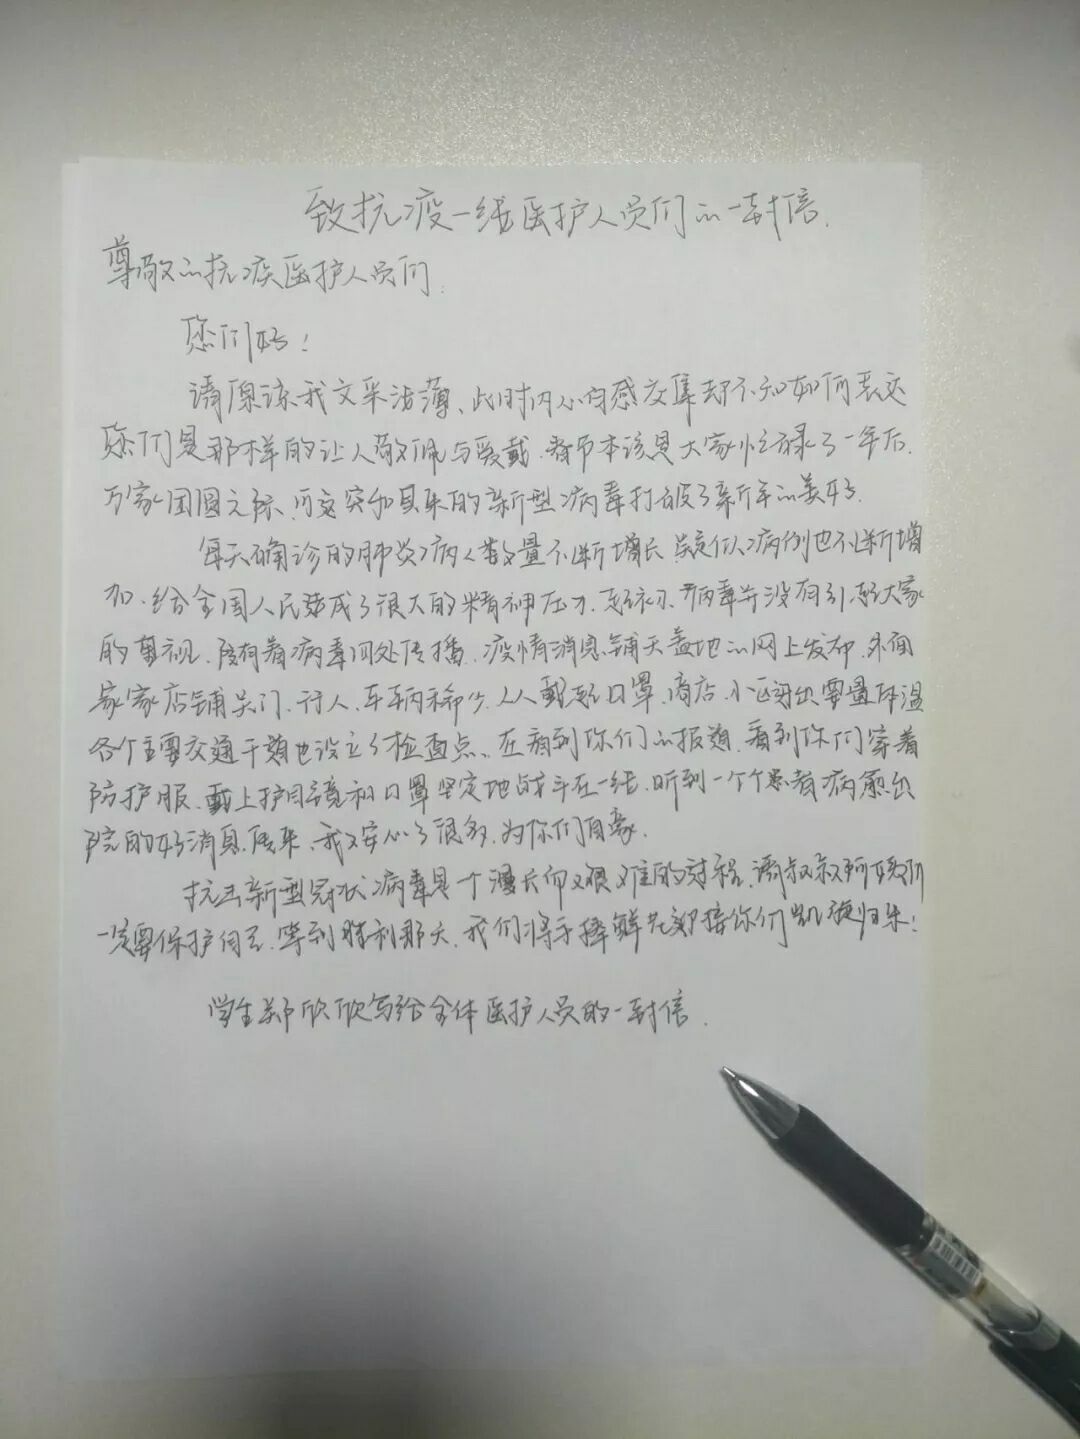 致抗疫一线医护人员们的一封信.
尊敬的抗疫医护人员们:
您们好!
请原谅我文采浅薄、此时内心百感交集却不知如何表达
您们是那样的让人敬佩与爱戴.春节本该是大家忙碌了一年后.
万家团圆之际、可这突如其来的新型病毒打破了新年的美好.
每天确诊的肺炎病人数量不断增长 疑似病例也不断增
加、给全国人民造成了很大的精神压力.起初、病毒并没有引起大家
的重视.随着病毒四处传播.疫情消息铺天盖地的网上发布.外面
家家店铺关门、行人、车辆稀少、人人戴起口罩.商店、小区进出需量体温
各个主要交通干道也设立了检查点、在看到你们的报道.看到你们穿着
防护服、戴上护目镜和口罩坚定地战斗在一线.听到一个个患者病愈出
院的好消息传来、我又安心了很多.为你们自豪.
抗击新型冠状病毒是个漫长而又艰难的过程.请叔叔阿姨们
一定要保护自己.等到胜利那天.我们将手捧鲜花迎接你们凯旋归来!
学生郑欣欣写给全体医护人员的一封信.